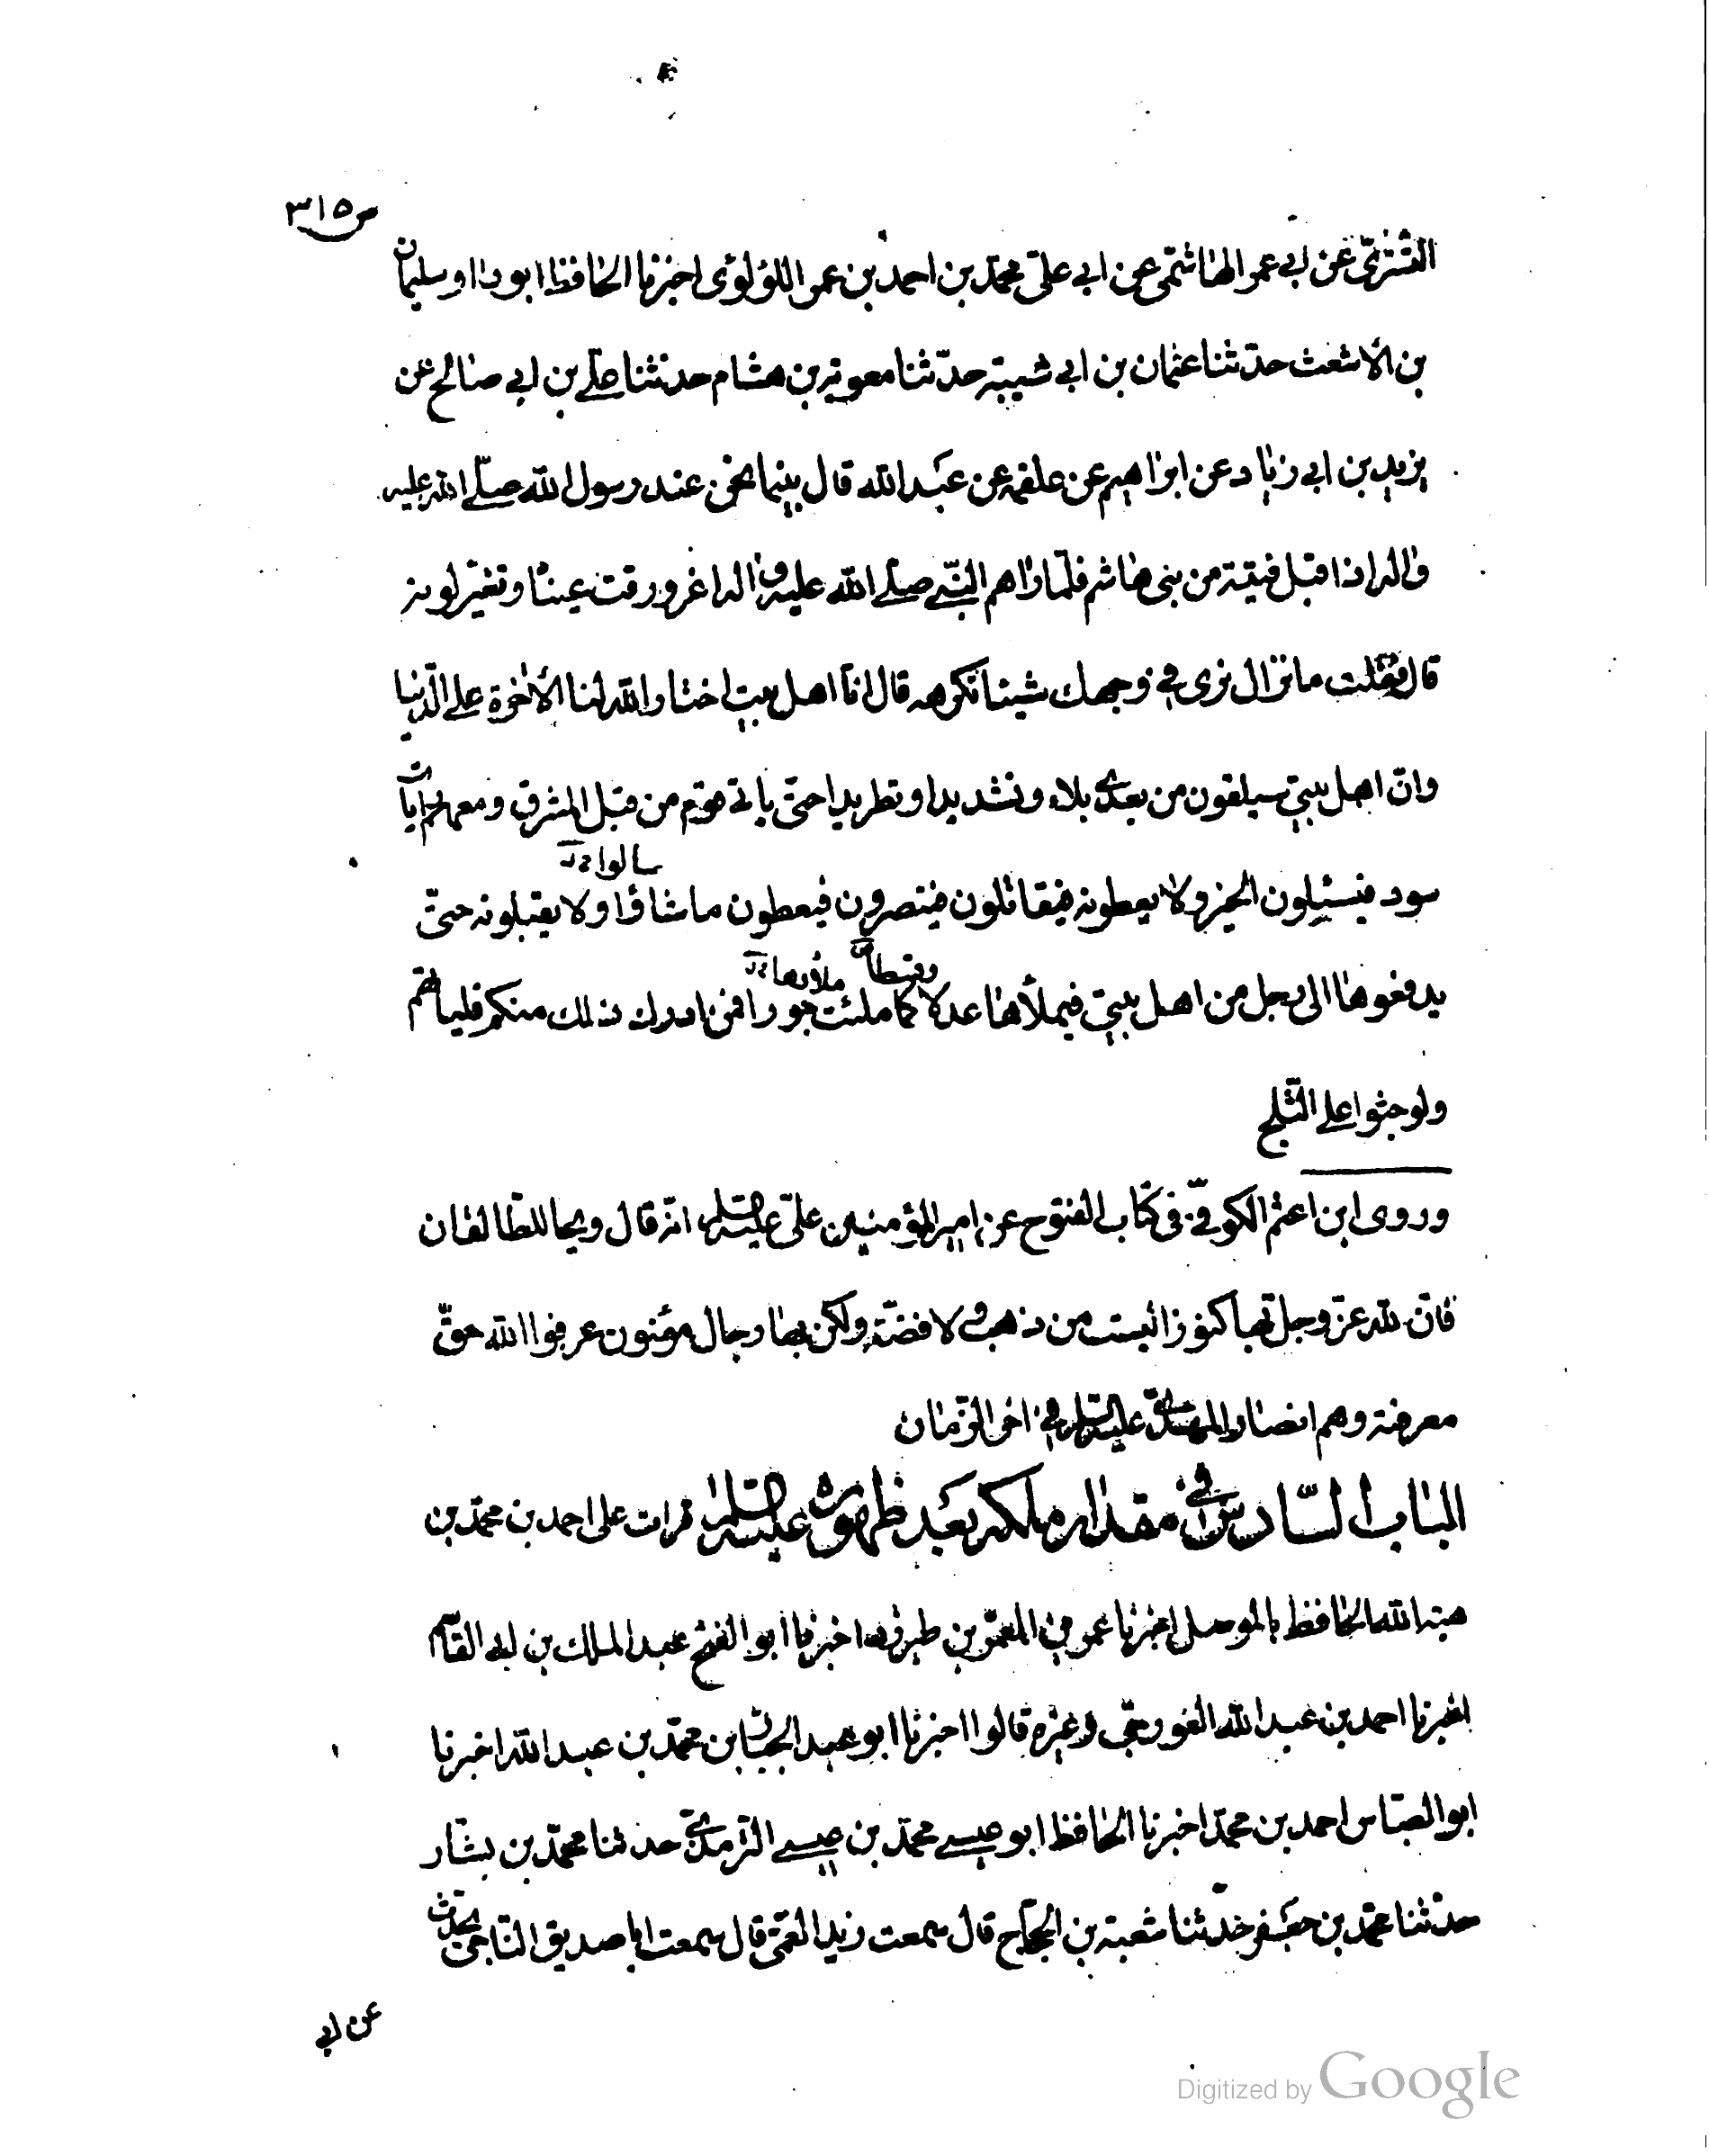 ص ٣١٥
التستري عن ابي عمر الهاشمي عن ابي علي محمد بن احمد بن عمر اللؤلؤي اخبرنا الحافظ ابو داود سليمان
بن الاشعث حدثنا عثمان بن ابي شيبة حدثنا معوية بن هشام حدثنا علي بن ابي صالح عن
يزيد بن ابي زياد عن ابراهيم عن علقمه عن عبد الله قال بينما نحن عند رسول الله صلى الله عليه
واله اذا اقبل فيتة من بني هاشم فلما راهم النبي صلى الله عليه واله اغرورقت عيناه وتغير لونه
قال فقلت ما نزال نرى في وجهك شيئا نكرهه قال انا اهل بيت اختار الله لنا الآخرة على الدنيا
وان اهل بيتي سيلقون من بعدي بلاء وتشديدا وتطريدا حتى ياتي قوم من قبل المشرق ومعهم رايات
سالوا خ‍ ل
سود فيسئلون الخيز ولا يعطونه فيقاتلون فينصرون فيعطون ما شاؤا ولا يقبلونه حتى
وقسطا ملأوها خ‍ ل
يدفعوها الى رجل من اهل بيتي فيملأها عدلا كما ملئت جورا فمن ادرك ذلك منكم فلياتهم
ولو جثوا على الثلج
وروى ابن اعثم الكوفي في كتاب الفتوح عن امير المؤمنين علي عليه السلم انه قال ويحا للطالقان
فان لله عز وجل بها كنوزا ليست من ذهب ولا فضة ولكن بها رجال مؤمنون عرفوا الله حق
معرفته وهم انصار المهدي عليه السلم في اخر الزمان
الباب السادس في مقدار ملكه بعد ظهوره عليه السلم قرات على احمد بن محمد بن
هبة الله الحافظ بالموصل اخبرنا عمر بن المعمر بن طبرزد اخبرنا ابو الفتح عبد الملك بن ابي القاسم
اخبرنا احمد بن عبد الله الغورجي وغيره قالوا اخبرنا ابو عبد الجبار بن محمد بن عبد الله اخبرنا
ابو العباس احمد بن محمد اخبرنا الحافظ ابو عيسى محمد بن عيسى الترمذي حدثنا محمد بن بشار
حدثنا محمد بن جعفر حدثنا شعبة بن الحجاج قال سمعت زيد العمي قال سمعت ابا صديق الناجي يحدث
عن ابي
Digitized by Google